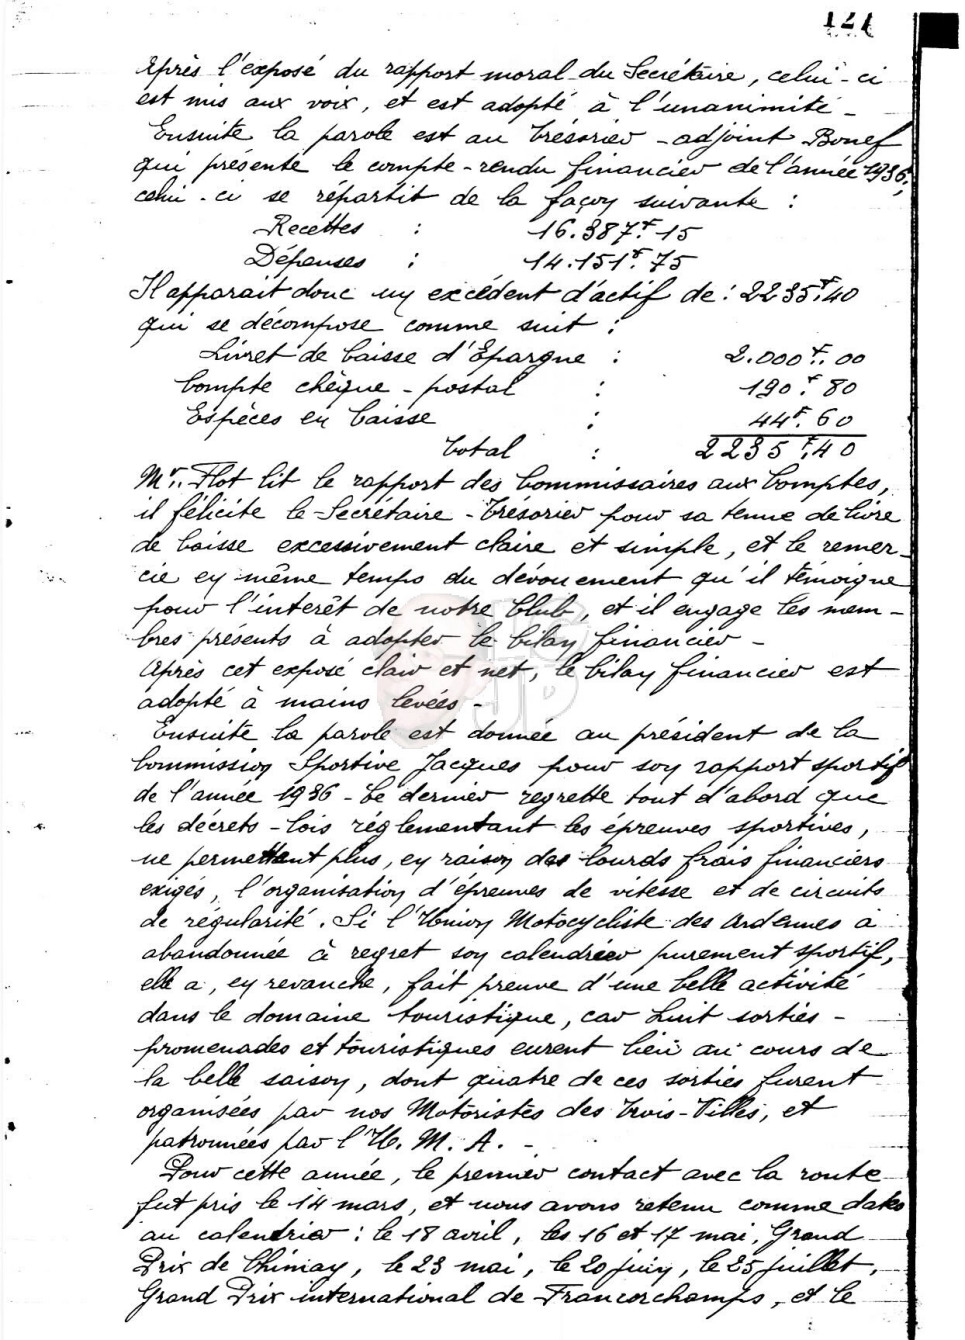 121
Après l'exposé du rapport moral du Secrétaire, celui-ci
est mis aux voix, et est adopté à l'unanimité -
Ensuite la parole est au trésorier-adjoint Bonef
qui présente le compte-rendu financier de l'année 1936,
celui-ci se répartit de la façon suivante :
Recettes : 16.387F.15
Dépenses : 14.151F.75
Il apparait donc un excédent d'actif de : 2235F.40
qui se décompose comme suit :
Livret de Caisse d'Epargne : 2.000F.00
Compte chèque-postal : 190F.80
Espèces en Caisse : 44F.60
Total : 2235F.40
Mr. Flot lit le rapport des Commissaires aux Comptes,
il félicite le Secrétaire-Trésorier pour sa tenue de livre
de Caisse excessivement claire et simple, et le remer-
cie en même temps du dévouement qu'il témoigne
pour l'interêt de notre Club, et il engage les mem-
bres présents à adopter le bilan financier -
Après cet exposé clair et net, le bilan financier est
adopté à mains levées -
Ensuite la parole est donnée au président de la
Commission Sportive Jacques pour son rapport sportif
de l'année 1936 - Ce dernier regrette tout d'abord que
les décrets-lois réglementant les épreuves sportives,
ne permettent plus, en raison des lourds frais financiers
exigés, l'organisation d'épreuves de vitesse et de circuits
de régularité. Si l'Union Motocycliste des Ardennes a
abandonnée à regret son calendrier purement sportif,
elle a, en revanche, fait preuve d'une belle activité
dans le domaine touristique, car huit sorties -
promenades et touristiques eurent lieu au cours de
la belle saison, dont quatre de ces sorties furent
organisées par nos Motoristes des Trois-Villes, et
patronnées par l'U.M.A. -
Pour cette année, le premier contact avec la route
fut pris le 14 mars, et nous avons retenu comme dates
au calendrier : le 18 avril, les 16 et 17 mai, Grand
Prix de Chimay, le 23 mai, le 20 juin, le 25 juillet,
Grand Prix international de Francorchamps, et le